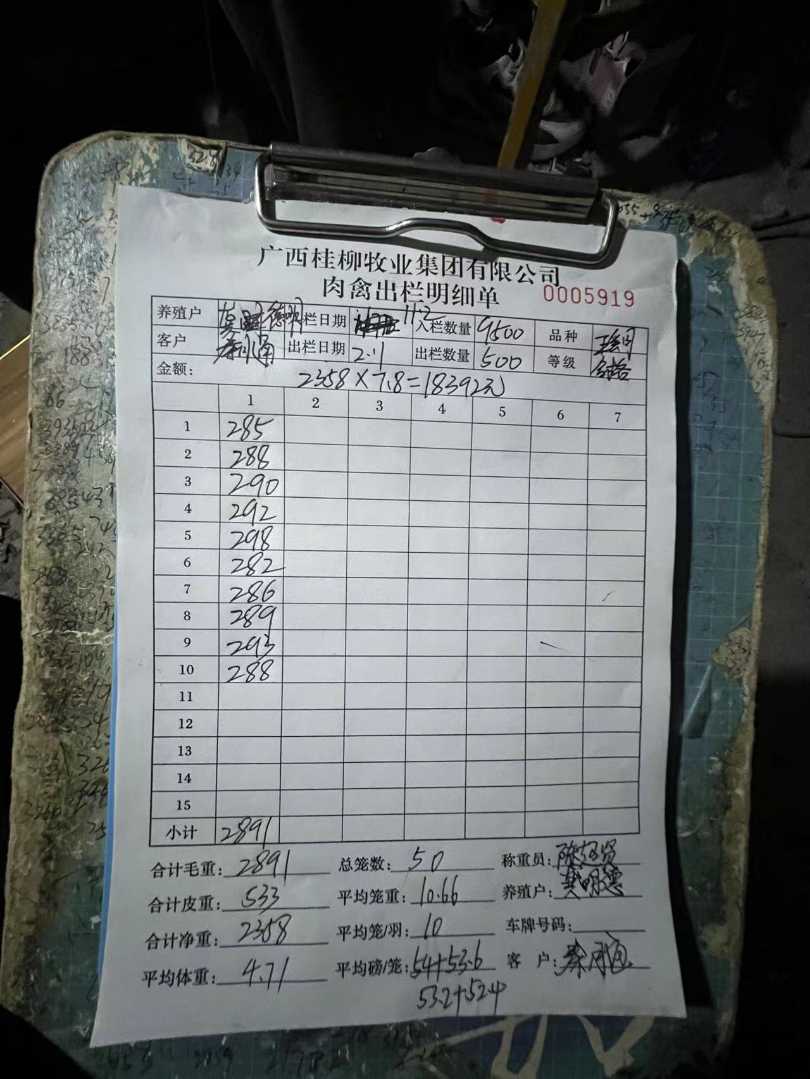 广西桂柳牧业集团有限公司
肉禽出栏明细单 0005919
养殖户 入栏日期 11.2 入栏数量 9500 品种
客户 出栏日期 2.1 出栏数量 500 等级
金额: 2358×7.8=18392元
1 2 3 4 5 6 7
1 285
2 288
3 290
4 292
5 298
6 282
7 286
8 289
9 293
10 288
11
12
13
14
15
小计 2891
合计毛重: 2891 总笼数: 50 称重员:
合计皮重: 533 平均笼重: 10.66 养殖户:
合计净重: 2358 平均笼/羽: 10 车牌号码:
平均体重: 4.71 平均磅/笼: 54+53.6 客 户:
53.2+52.4